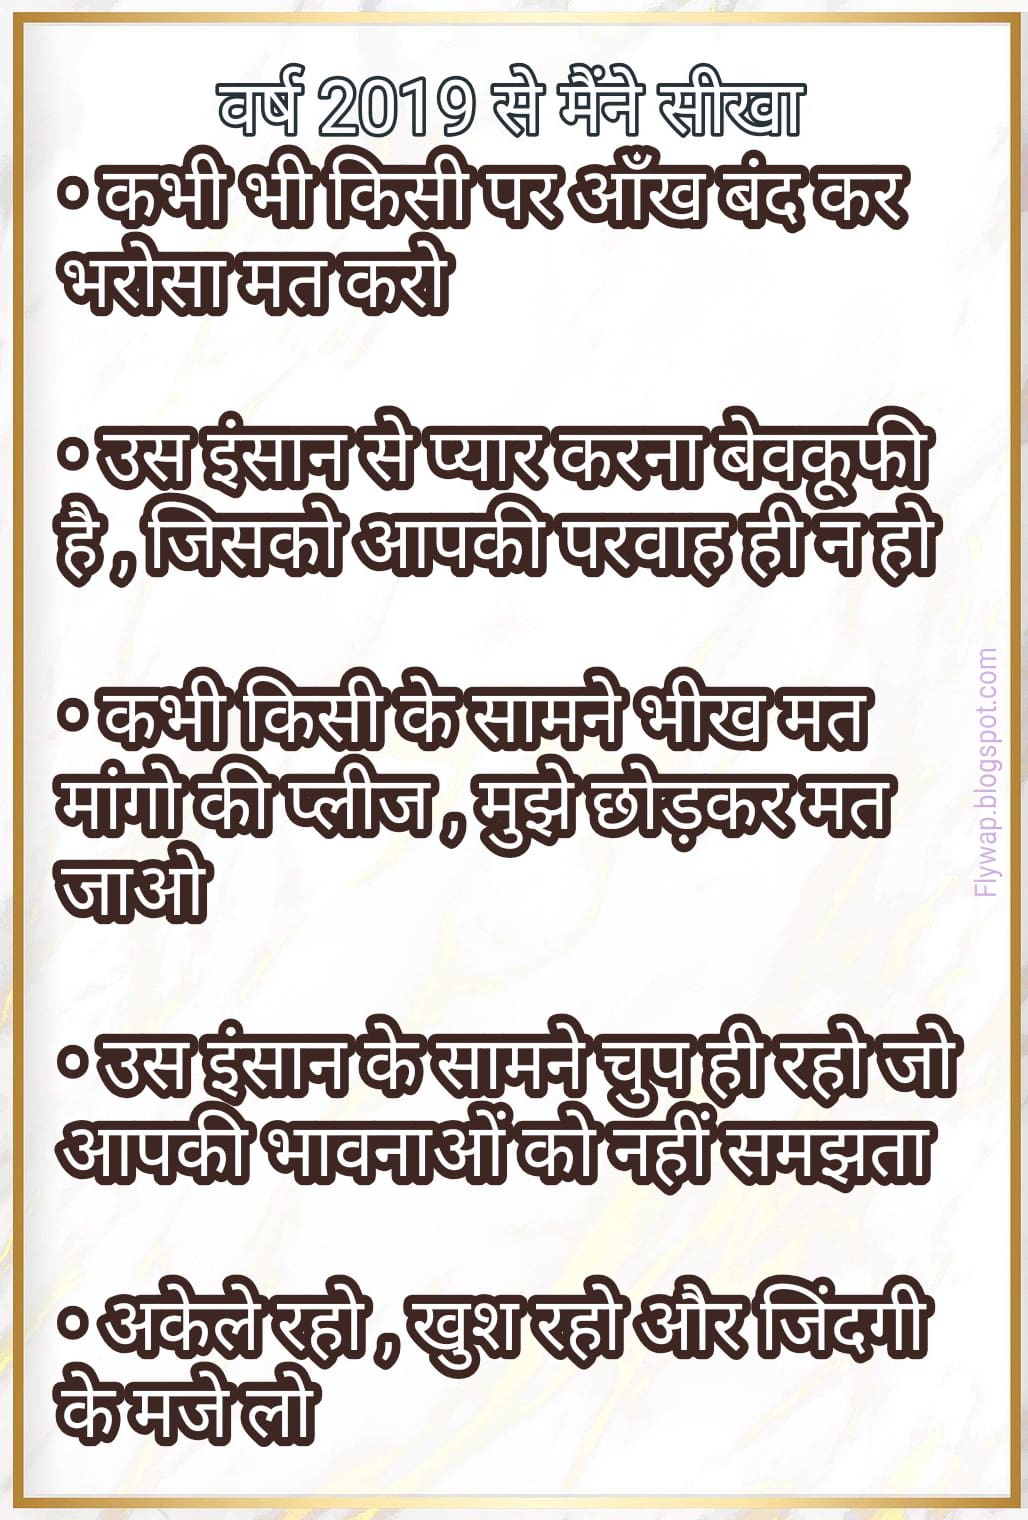 वर्ष 2019 से मैंने सीखा
° कभी भी किसी पर आँख बंद कर
भरोसा मत करो
° उस इंसान से प्यार करना बेवकूफी
है , जिसको आपकी परवाह ही न हो
° कभी किसी के सामने भीख मत
मांगो की प्लीज , मुझे छोड़कर मत
जाओ
° उस इंसान के सामने चुप ही रहो जो
आपकी भावनाओं को नहीं समझता
° अकेले रहो , खुश रहो और जिंदगी
के मजे लो
Flywap.blogspot.com